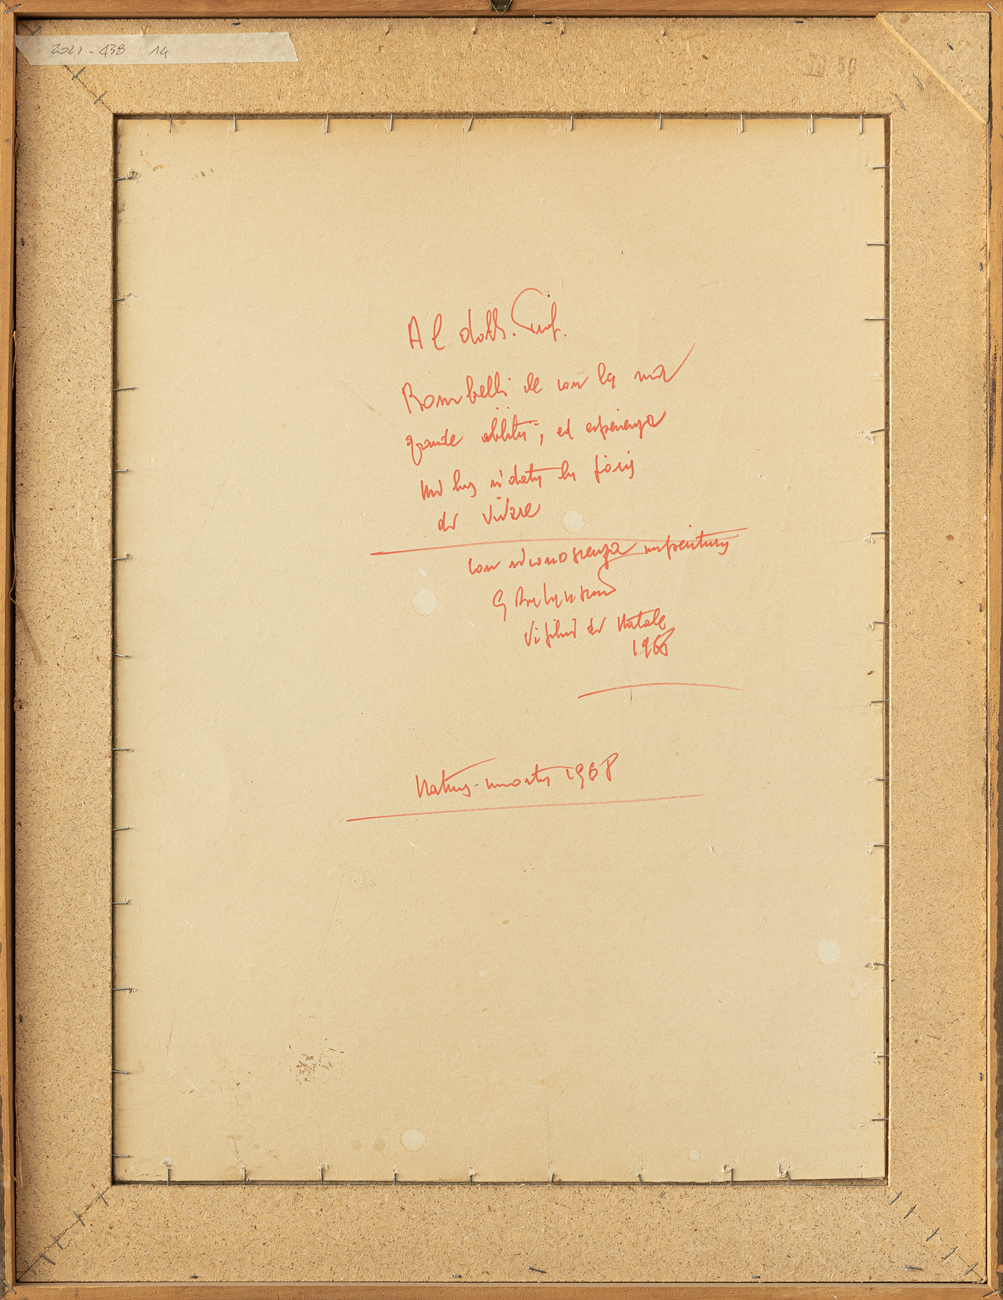 2021-438 14
50
Al dott. Prof.
Bombelli che con la sua
grande abilità, ed esperienza
mi ha ridato la gioia
di vivere
con riconoscenza imperitura
G
Vigilia di Natale
1968
Natura-morta 1968